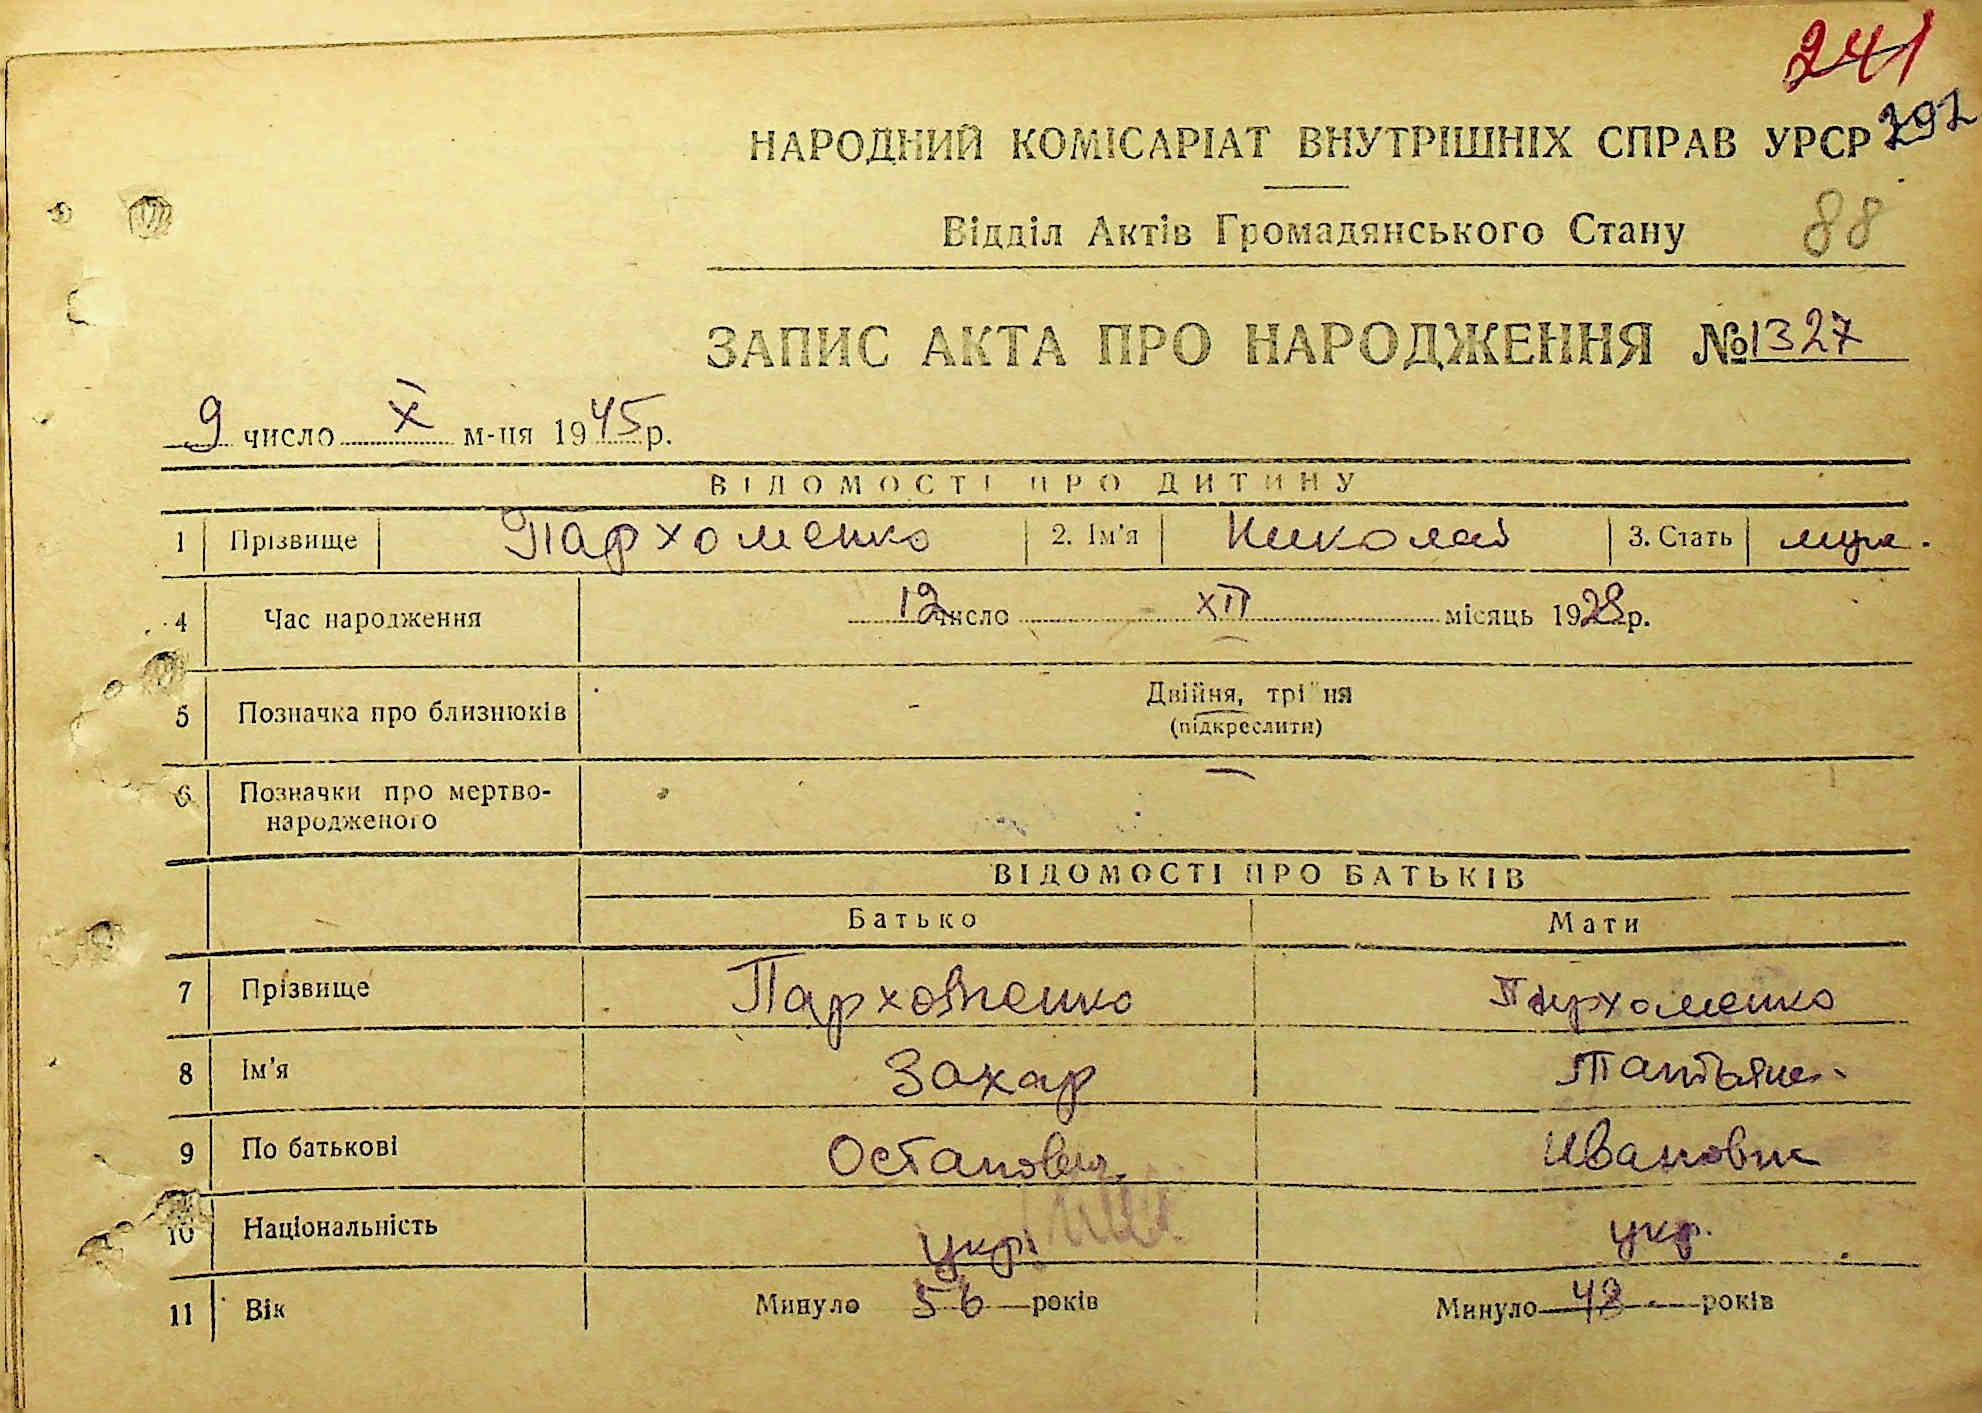 241
392
НАРОДНИЙ КОМІСАРІАТ ВНУТРІШНІХ СПРАВ УРСР
Відділ Актів Громадянського Стану 88
ЗАПИС АКТА ПРО НАРОДЖЕННЯ № 1327
9 число X м-ця 1945 р.
ВІДОМОСТІ ПРО ДИТИНУ
1 Прізвище Пархоменко 2. Ім'я Николай 3. Стать муж.
4 Час народження 12 число XII місяць 1928 р.
5 Позначка про близнюків Двійня, трійня
(підкреслити)
6 Позначки про мертво-
народженого
ВІДОМОСТІ ПРО БАТЬКІВ
Батько Мати
7 Прізвище Пархоменко Пархоменко
8 Ім'я Захар Татьяна
9 По батькові Остапович Ивановна
10 Національність укр. укр.
11 Вік Минуло 56 років Минуло 48 років